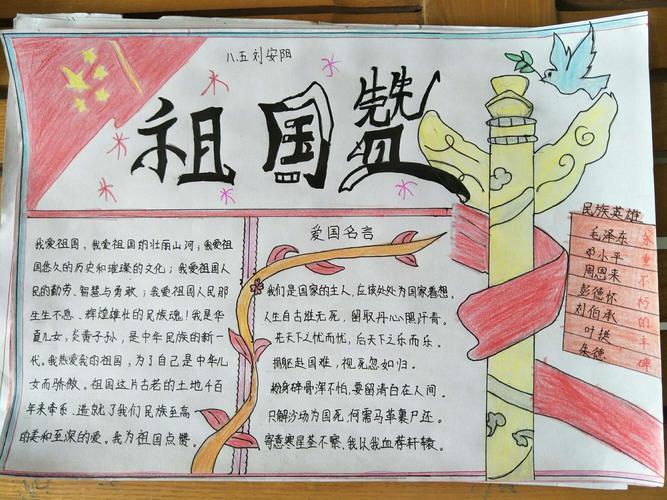 八.五刘安阳
祖国赞
我爱祖国，我爱祖国的壮丽山河；我爱祖
国悠久的历史和璀璨的文化；我爱祖国人
民的勤劳、智慧与勇敢；我爱祖国人民那
生生不息、辉煌雄壮的民族魂！我是华
夏儿女，炎黄子孙，是中华民族的新一
代。我热爱我的祖国，为了自己是中华儿
女而骄傲。祖国这片古老的土地
年来牵系，造就了我们民族至高
的美和至深的爱。我为祖国点赞。
爱国名言
我们是国家的主人，应该处处为国家着想。
人生自古谁无死，留取丹心照汗青。
先天下之忧而忧，后天下之乐而乐。
捐躯赴国难，视死忽如归。
粉身碎骨浑不怕，要留清白在人间。
只解沙场为国死，何需马革裹尸还。
寄意寒星荃不察，我以我血荐轩辕。
民族英雄
毛泽东
邓小平
周恩来
彭德怀
刘伯承
叶挺
朱德
永垂不朽的丰碑